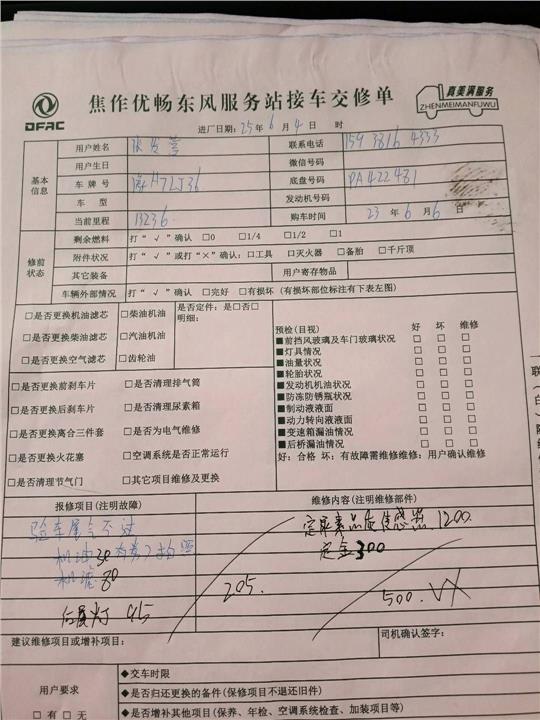 DFAC
焦作优畅东风服务站接车交修单
真美满服务
ZHENMEIMANFUWU
进厂日期：25年6月4日 时
基本信息
用户姓名 联系电话 159 3816 4333
用户生日 微信号码
车牌号 底盘号码 PA422481
车型 发动机号码
当前里程 13236 购车时间 23年6月6日
修前状态
剩余燃料 打“√”确认 □0 □1/4 □1/2 □1
附件状况 打“√”或打“×”确认：□工具 □灭火器 □备胎 □千斤顶
其它装备 用户寄存物品
车辆外部情况 打“√”确认 □完好 □有损坏（有损坏部位标注有下表左图）
□是否更换机油滤芯 □柴油机油 是否定件：是□否□
明细：
□是否更换柴油滤芯 □汽油机油
□是否更换空气滤芯 □齿轮油
□是否更换前刹车片 □是否清理排气筒
□是否更换后刹车片 □是否清理尿素箱
□是否更换离合三件套 □是否为电气维修
□是否更换火花塞 □空调系统是否正常运行
□是否清理节气门 □其它项目维修及更换
预检(目视) 好 坏 维修
■前挡风玻璃及车门玻璃状况 □ □ □
■灯具情况 □ □ □
■油量状况 □ □ □
■轮胎状况 □ □ □
■发动机机油状况 □ □ □
■防冻防锈瓶状况 □ □ □
■制动液液面 □ □ □
■动力转向液液面 □ □ □
■变速箱漏油情况 □ □ □
■后桥漏油情况 □ □ □
好：合格 坏：有故障需维修维修：用户确认维修
联
(白
报修项目(注明故障) 维修内容(注明维修部件)
验车尾气不过 定尿素品质传感器 1200.
机油30 定金300
机滤 80 205.
后尾灯 95 500. VX
建议维修项目或增补项目： 司机确认签字：
用户要求
□有□无
◆交车时限
◆是否归还更换的备件(保修项目不退还旧件)
◆是否增补其他项目(保养、年检、空调系统检查、加装项目等)